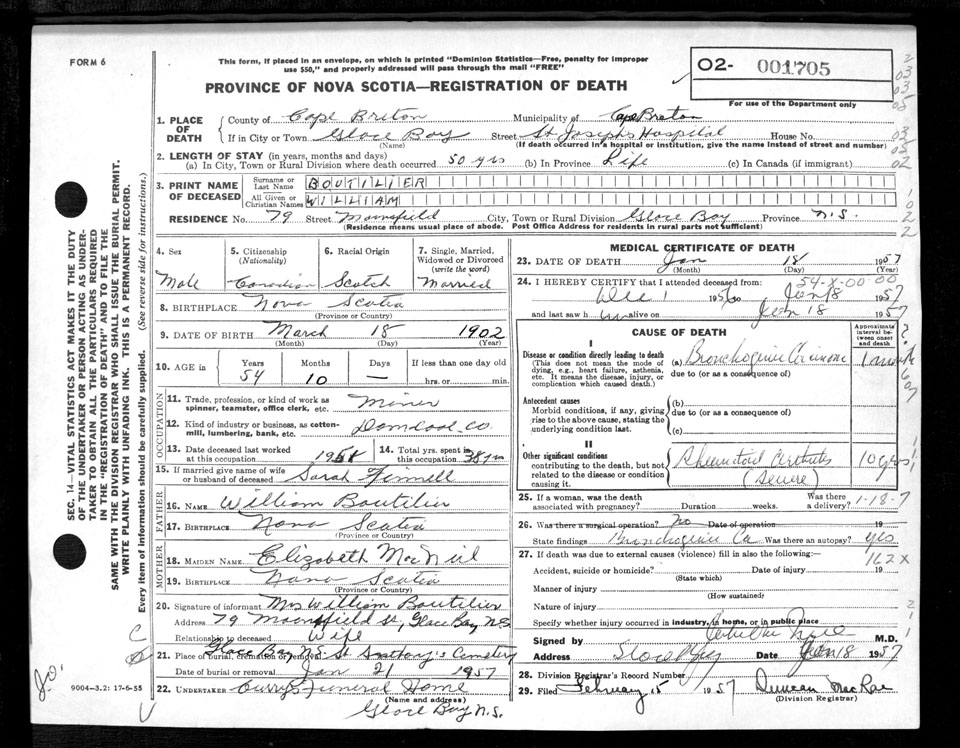 FORM 6
This form, if placed in an envelope, on which is printed "Dominion Statistics—Free, penalty for improper
use $50," and properly addressed will pass through the mail "FREE"
PROVINCE OF NOVA SCOTIA—REGISTRATION OF DEATH
02- 001705
For use of the Department only
1. PLACE OF DEATH County of Cape Breton Municipality of Cape Breton
If in City or Town Glace Bay Street St Josephs Hospital House No.
(Name) (If death occurred in a hospital or institution, give the name instead of street and number)
2. LENGTH OF STAY (in years, months and days)
(a) In City, Town or Rural Division where death occurred 50 yrs (b) In Province Life (c) In Canada (if immigrant)
3. PRINT NAME OF DECEASED Surname or Last Name BOUTILIER
All Given or Christian Names WILLIAM
RESIDENCE No. 79 Street City, Town or Rural Division Glace Bay Province N.S.
(Residence means usual place of abode. Post Office Address for residents in rural parts not sufficient)
4. Sex Male
5. Citizenship (Nationality) Canadian
6. Racial Origin Scotch
7. Single, Married, Widowed or Divorced (write the word) Married
8. BIRTHPLACE Nova Scotia
(Province or Country)
9. DATE OF BIRTH March 18 1902
(Month) (Day) (Year)
10. AGE in Years 54 Months 10 Days — If less than one day old hrs. or min.
OCCUPATION
11. Trade, profession, or kind of work as spinner, teamster, office clerk, etc. Miner
12. Kind of industry or business, as cotton-mill, lumbering, bank, etc. Domcoal Co.
13. Date deceased last worked at this occupation
14. Total yrs. spent in this occupation 38 yrs
15. If married give name of wife or husband of deceased Sarah
FATHER
16. NAME William Boutilier
17. BIRTHPLACE Nova Scotia
(Province or Country)
MOTHER
18. MAIDEN NAME Elizabeth MacNeil
19. BIRTHPLACE Nova Scotia
(Province or Country)
20. Signature of informant Mrs William Boutilier
Address 79 St, Glace Bay N.S
Relationship to deceased Wife
21. Place of burial, cremation or removal Glace Bay N.S. St. Anthony's Cemetery
Date of burial or removal Jan 21 1957
22. UNDERTAKER Curry's Funeral Home
(Name and address)
Glace Bay N.S.
9004—3.2: 17-6-55
MEDICAL CERTIFICATE OF DEATH
23. DATE OF DEATH Jan 18 1957
(Month) (Day) (Year)
24. I HEREBY CERTIFY that I attended deceased from: 54-X-00 00
Dec 1 1956 to Jan 18 1957
and last saw h im alive Jan 18 1957
CAUSE OF DEATH
Approximate interval between onset and death
I
Disease or condition directly leading to death (a) Bronchogenic Carcinoma 1 month
(This does not mean the mode of dying, e.g., heart failure, asthenia, etc. It means the disease, injury, or complication which caused death.)
due to (or as a consequence of)
Antecedent causes (b)
Morbid conditions, if any, giving rise to the above cause, stating the underlying condition last.
due to (or as a consequence of)
(c)
II
Other significant conditions contributing to the death, but not related to the disease or condition causing it.
Rheumatoid Arthritis 10 yrs
(Severe)
25. If a woman, was the death associated with pregnancy? Duration weeks. Was there a delivery? 1-18-7
26. Was there a surgical operation? No Date of operation 19
State findings Bronchogenic Ca Was there an autopsy? yes
162X
27. If death was due to external causes (violence) fill in also the following:
Accident, suicide or homicide? Date of injury 19
(State which)
Manner of injury
(How sustained)
Nature of injury
Specify whether injury occurred in industry, in home, or in public place
Signed by M.D.
Address Glace Bay Date Jan 18 1957
28. Division Registrar's Record Number
29. Filed February 15 1957 Duncan MacRae
(Division Registrar)
SEC. 14—VITAL STATISTICS ACT MAKES IT THE DUTY
OF THE UNDERTAKER OR PERSON ACTING AS UNDERTAKER TO OBTAIN ALL THE PARTICULARS REQUIRED
IN THE "REGISTRATION OF DEATH" AND TO FILE THE
SAME WITH THE DIVISION REGISTRAR WHO SHALL ISSUE THE BURIAL PERMIT.
WRITE PLAINLY WITH UNFADING INK. THIS IS A PERMANENT RECORD.
Every item of information should be carefully supplied. (See reverse side for instructions.)